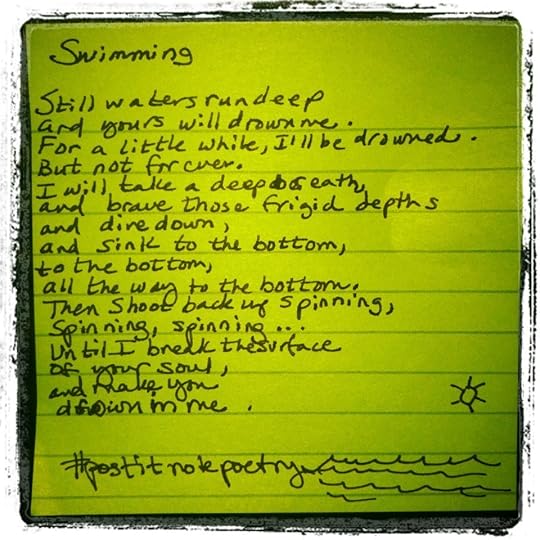 Swimming
Still waters run deep
and yours will drown me.
For a little while, I'll be drowned.
But not forever.
I will take a deep breath,
and brave those frigid depths
and dive down,
and sink to the bottom,
to the bottom,
all the way to the bottom.
Then shoot back up spinning,
spinning, spinning...
Until I break the surface
of your soul,
and make you
drown in me.
#postitnotepoetry